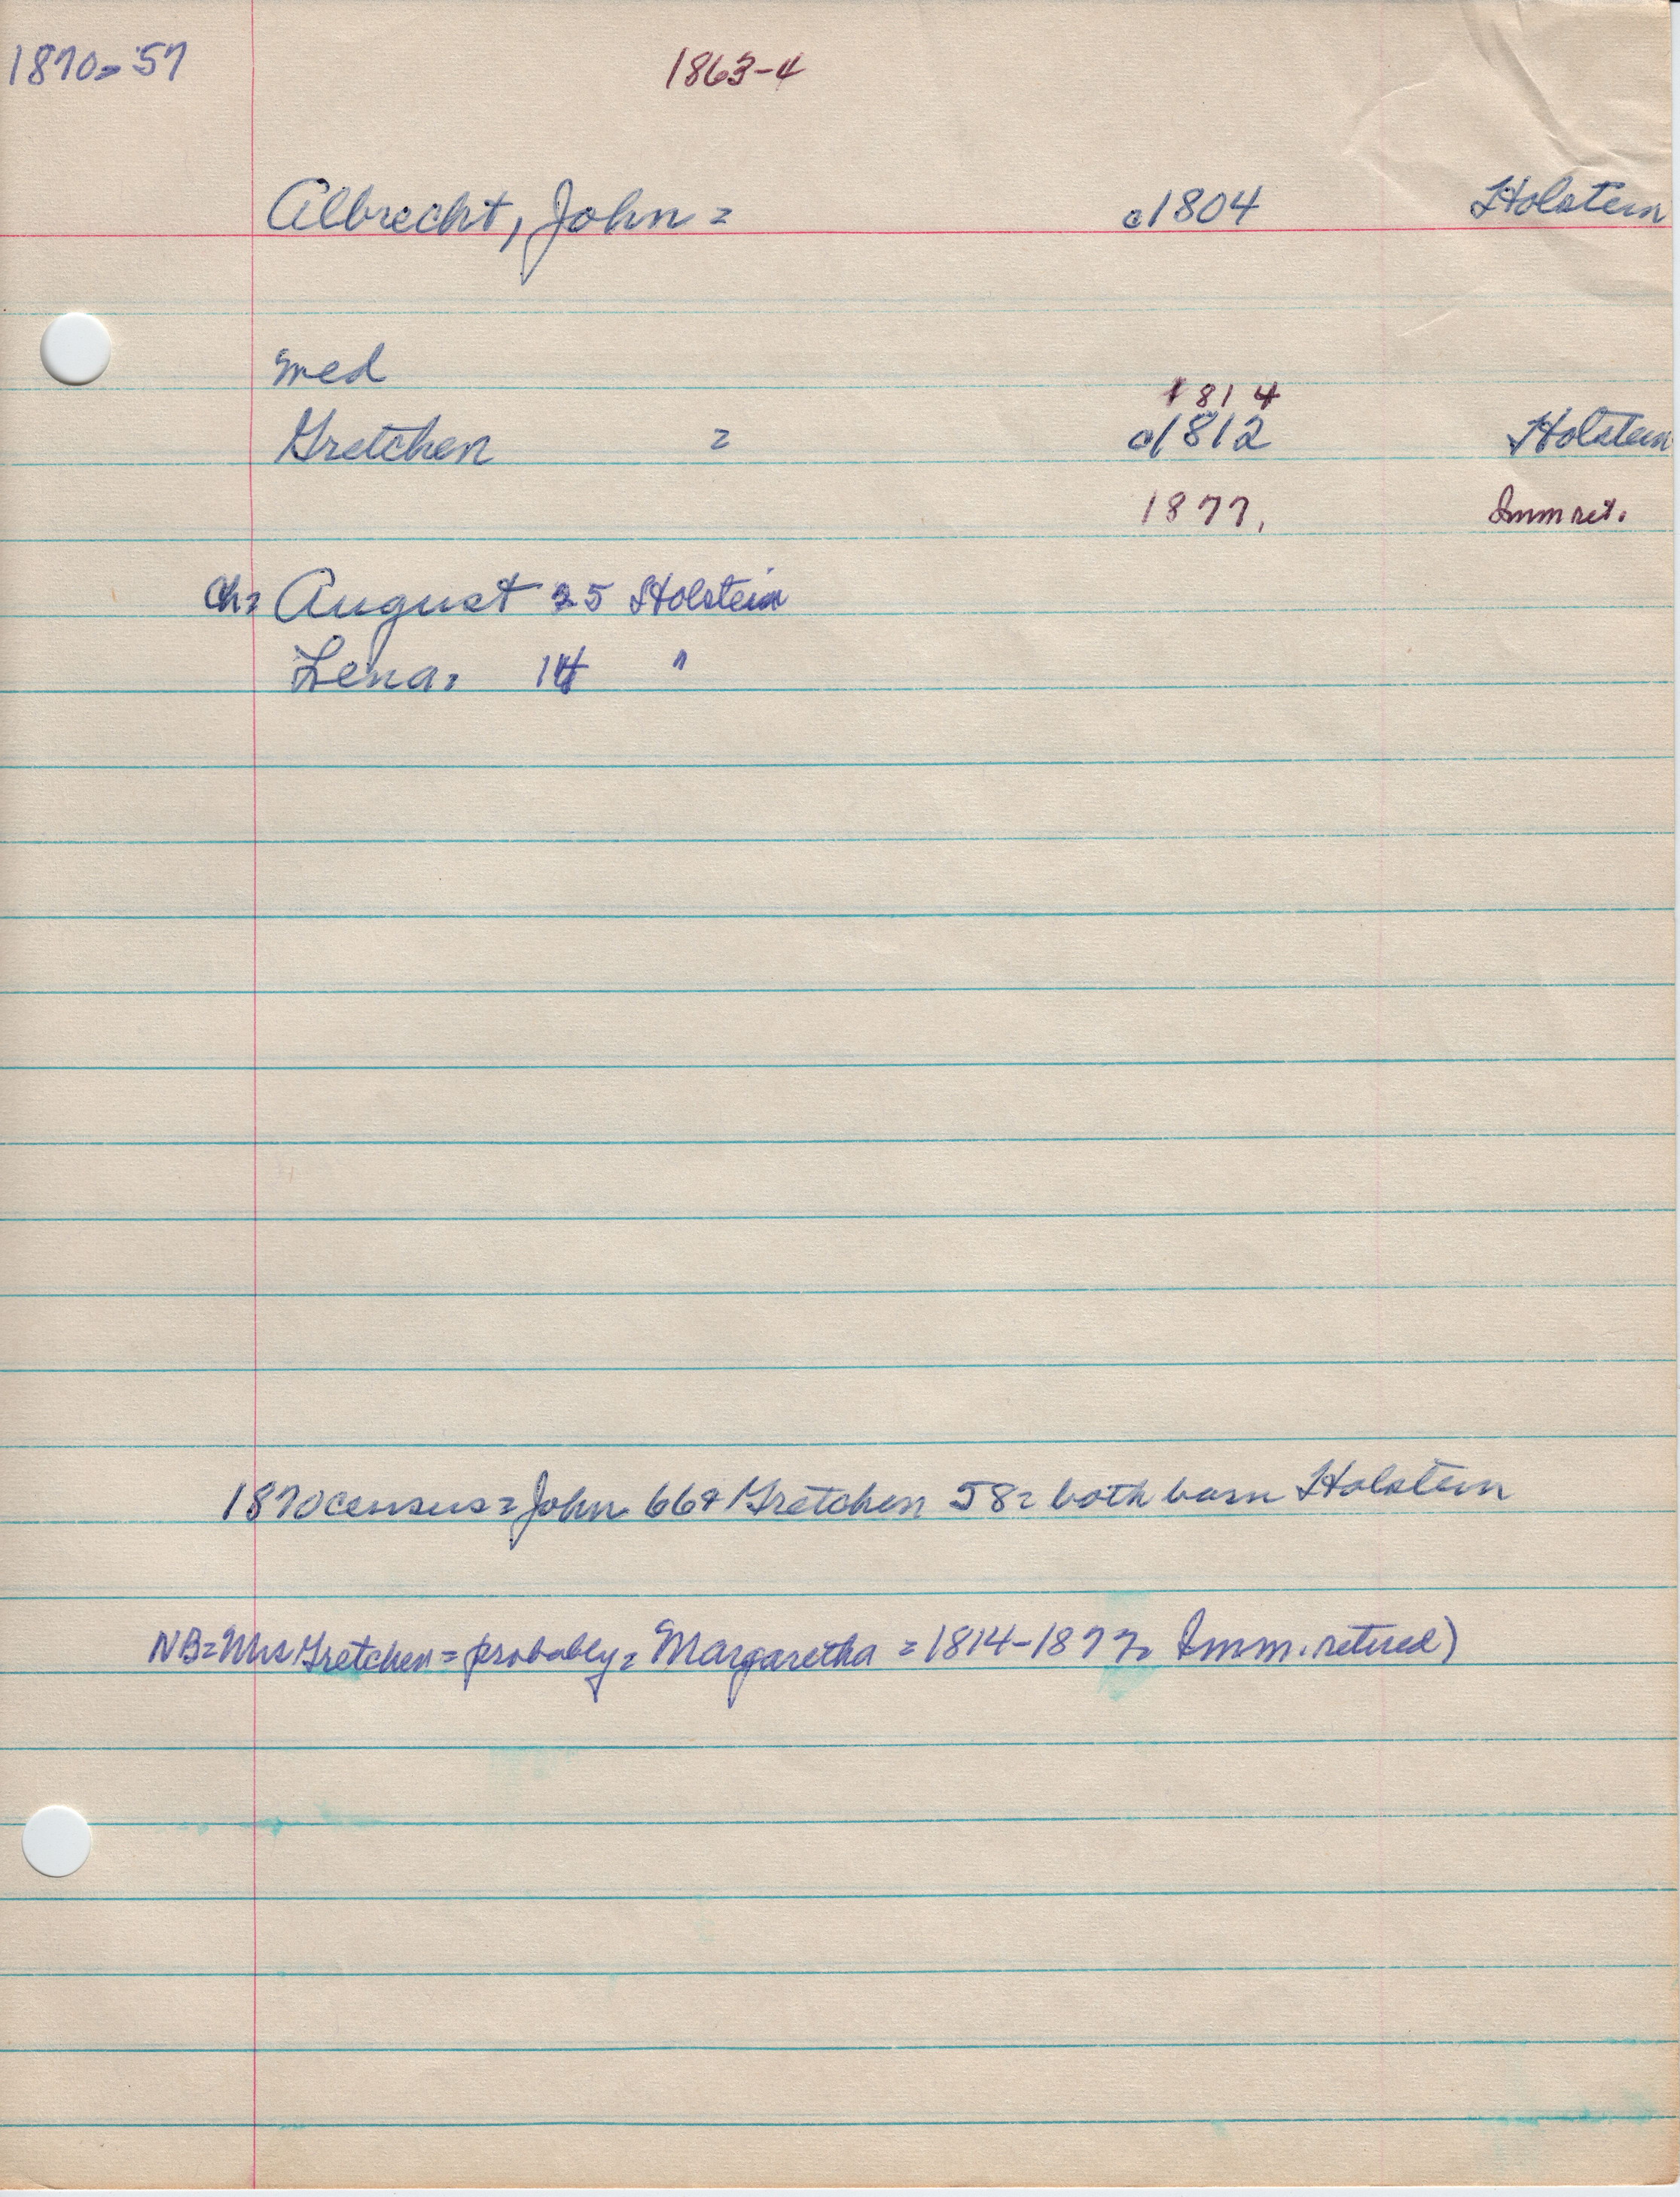 1870=57 1863-4
Albrecht, John = c1804 Holstein
med
1814
Gretchen = c1812 Holstein
1877. Imm ret.
Ch= August 25 Holstein
Lena. 14 "
1870 census=John 66 & Gretchen 58= both born Holstein
NB=Mrs Gretchen=probably= Margaretha =1814-1877= Imm. retired)